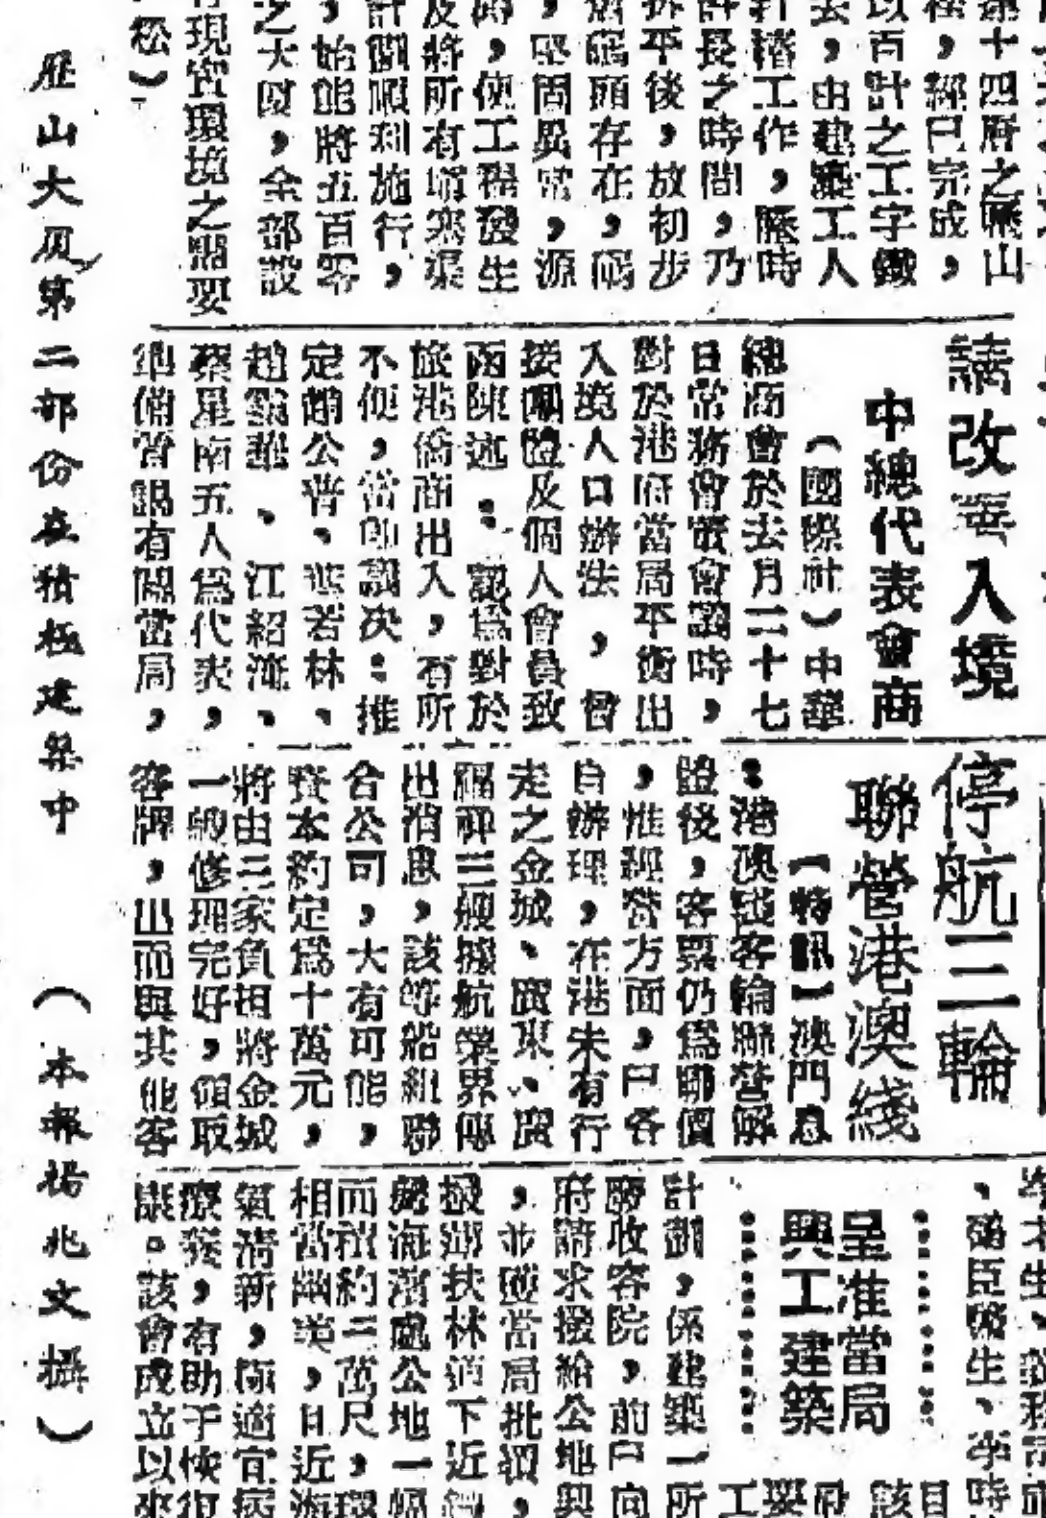 十四層之歷山
程，經已完成，
以百計之工字鐵
去，由建築工人
打樁工作，歷時
許長之時間，乃
拆平後，放初步
舊碼頭存在，碼
，堅固異常，源
時，使工程發生
及將所有壅塞渠
計劃順利施行，
，始能將五百零
之大厦，全部設
現實環境之需要
松）
請改善入境
中總代表會商
（國際社）中華
總商會於去月二十七
日常務會董會議時，
對於港府當局平衡出
入境人口辦法，曾
接團體及個人會員致
函陳述：認爲對於
旅港僑商出入，有所
不便，當即議决：推
定鍾公普、葉若林、
趙聿華、江紹海、
蔡星南五人爲代表，
準備晋謁有關當局，
停航三輪
聯營港澳綫
【特訊】澳門息
：港澳綫客輪聯營解
體後，客票仍爲聯價
，惟經營方面，已各
自辦理，在港未有行
走之金城、廣東、廣
福祥三艘據航業界傳
出消息，該等船組聯
合公司，大有可能，
資本約定爲十萬元，
將由三家負担將金城
一艘修理完好，領取
客牌，出而與其他客
呈准當局
興工建築
計劃，係建築一所
療收容院，前已向
府請求撥給公地興
，並獲當局批准，
撥湖扶林道下近
處海濱處公地一幅
而積約二萬尺，環
相當幽美，日近海
氣清新，極適宜病
療養，有助于恢復
康。該會成立以來
歷山大厦第二部份在積極建築中　（本報楊兆文攝）